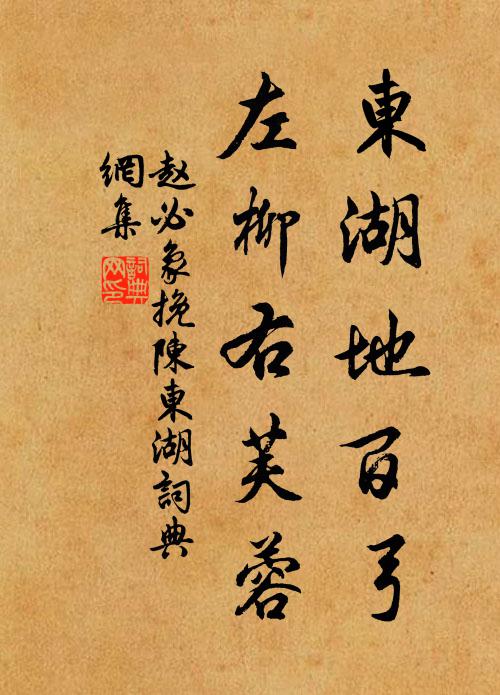 東湖地百弓
左柳右芙蓉
赵必象挽陳東湖詞典
網集
詞典网印